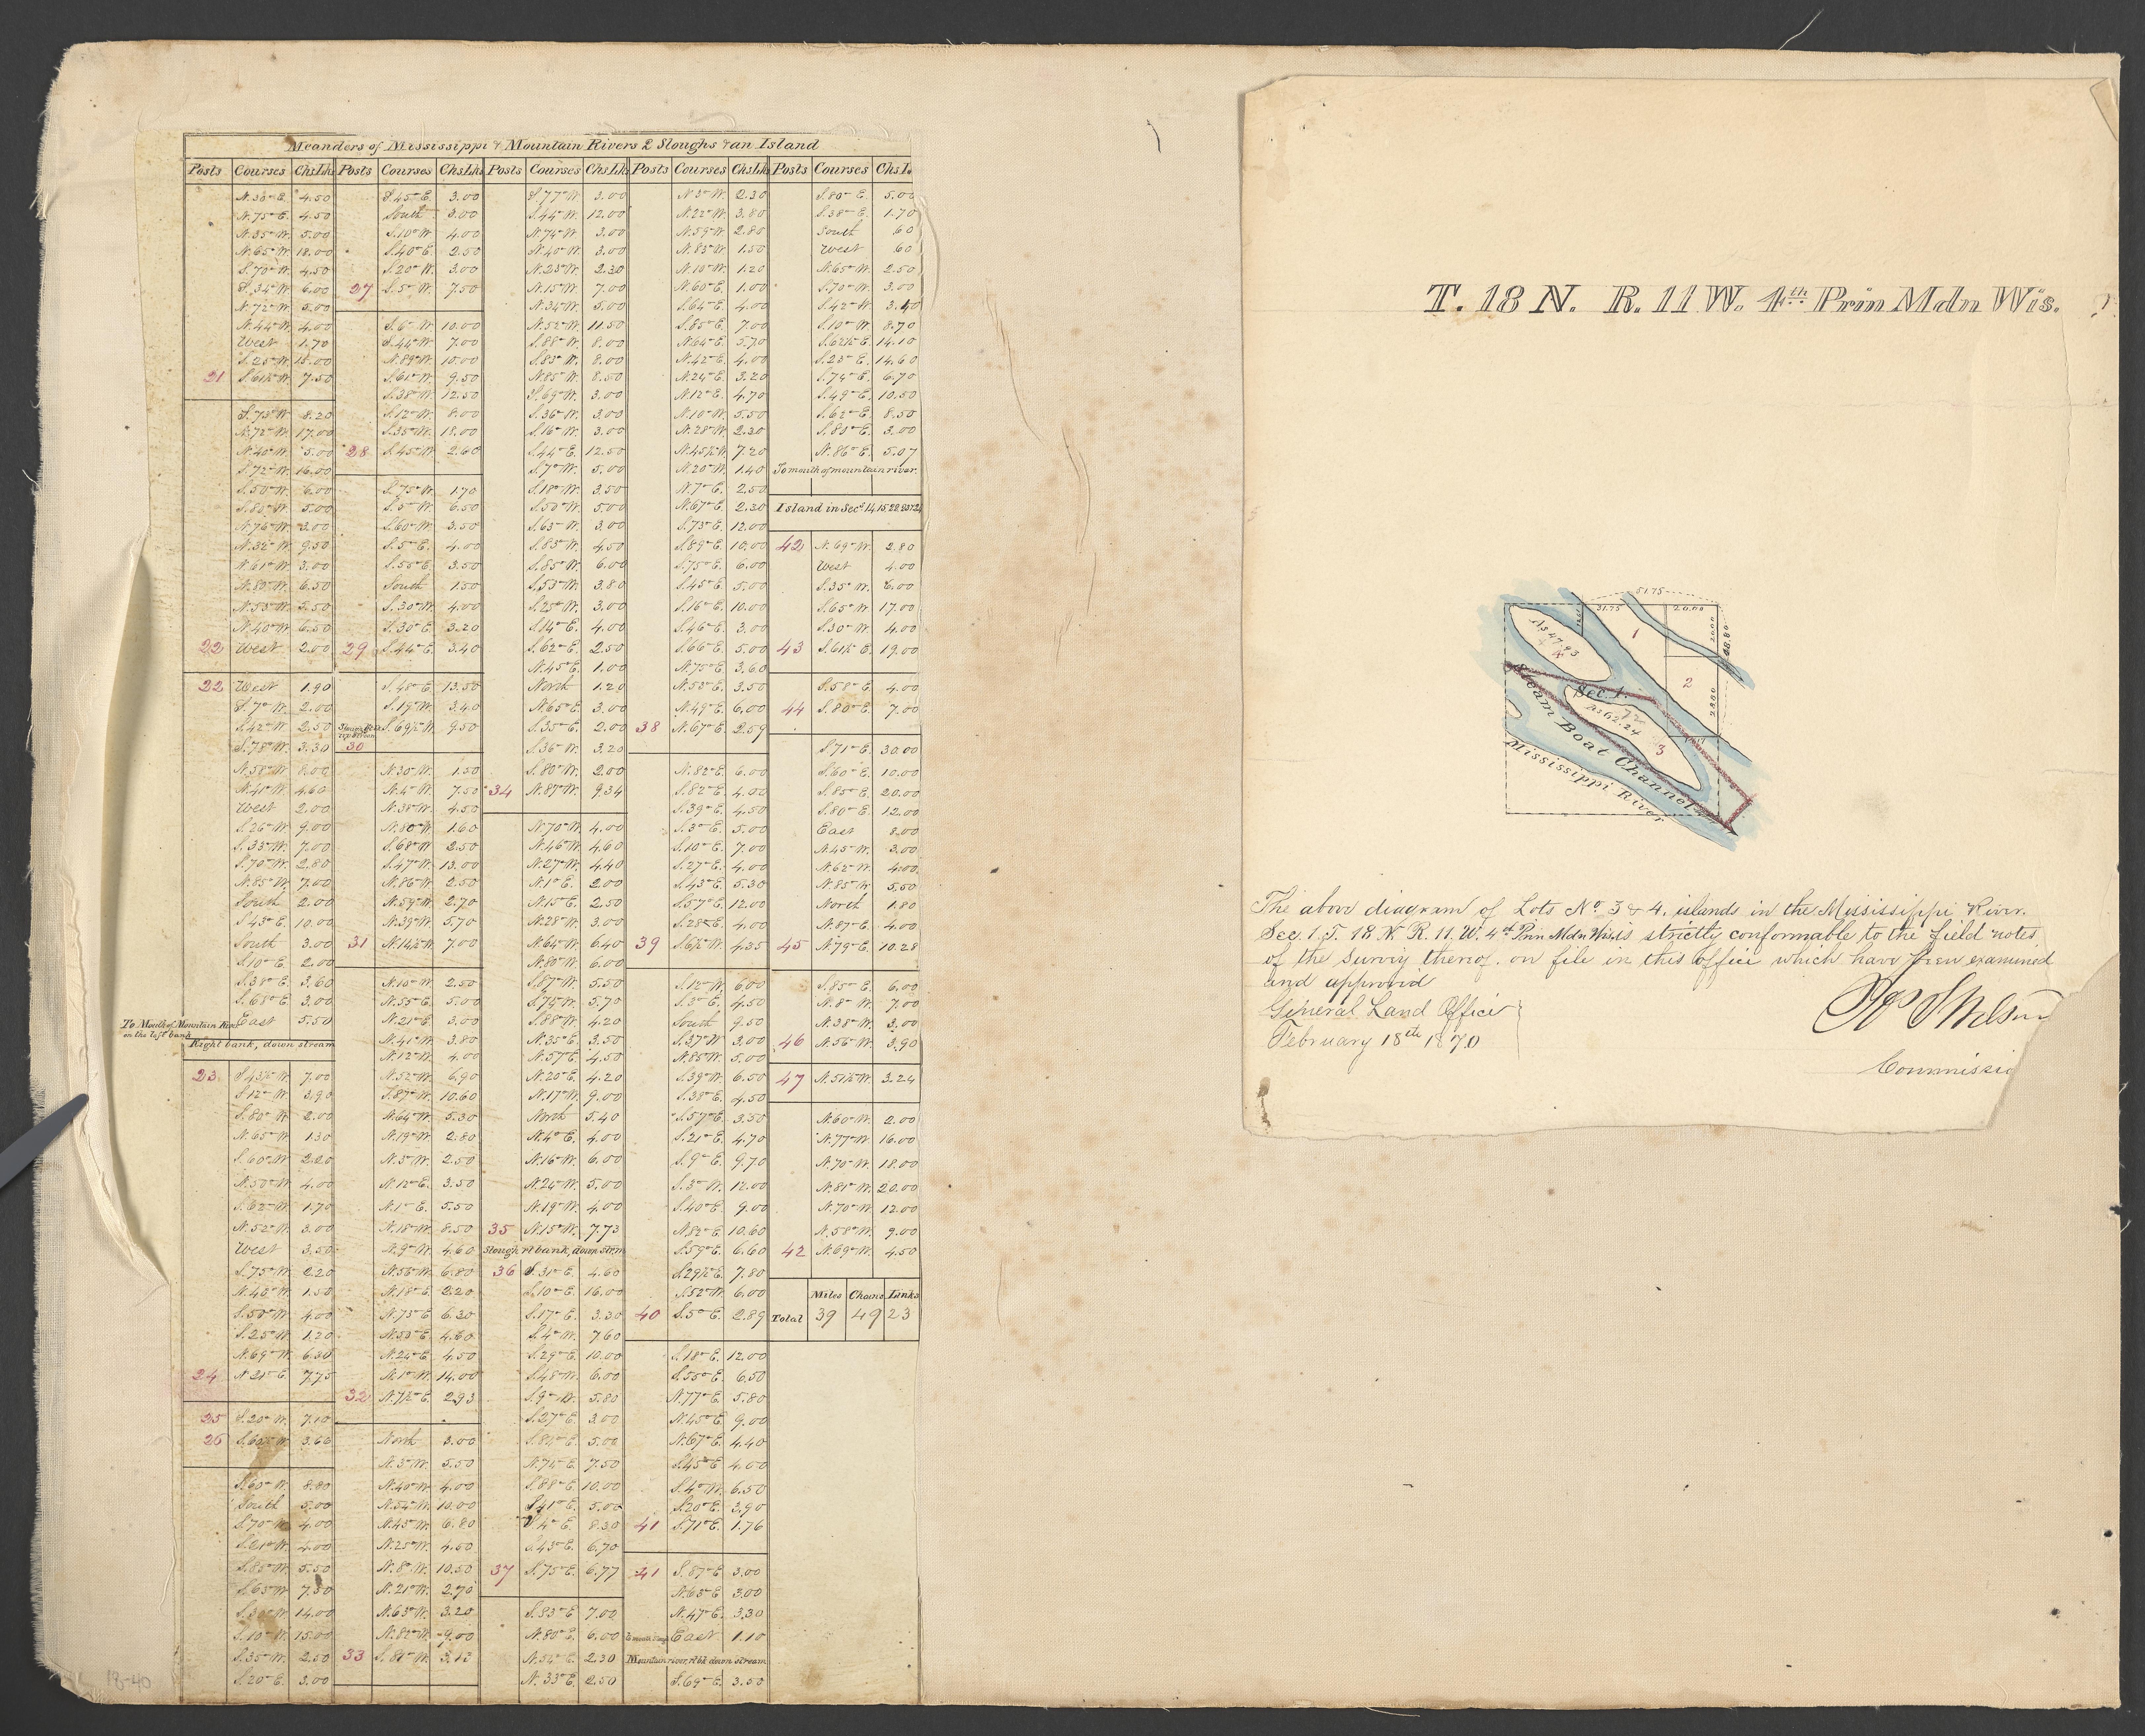 Meanders of Mississippi & Mountain Rivers 2 Sloughs & an Island
Posts Courses Chs.Lks Posts Courses Chs.Lks Posts Courses Chs.Lks Posts Courses Chs.Lks Posts Courses Chs.L
N.75°E. 4.50
N.35°W. 5.00
N.65°W. 18.00
S.70°W. 4.50
S.34°W. 6.00
N.72°W. 5.00
N.44°W. 4.00
West 1.70
S.25°W. 15.00
21 S.61½W. 7.50
S.73°W. 8.20
N.72°W. 17.00
N.40°W. 5.00
S.72°W. 16.00
S.50°W. 6.00
S.80°W. 5.00
N.76°W. 3.00
N.32°W. 9.50
N.61°W. 3.00
N.53°W. 5.50
N.40°W. 6.50
22 West 2.00
22 West 1.90
S.7°W. 2.00
S.42°W. 2.50
S.78°W. 3.30
N.58°W. 8.00
N.41°W. 4.60
West 2.00
S.26°W. 9.00
S.33°W. 7.00
S.70°W. 2.80
N.85°W. 7.00
South 2.00
S.43°E. 10.00
South 3.00
S.10°E. 2.00
S.38°E. 3.60
S.68°E. 3.00
To Mouth of Mountain River on the left bank East 5.50
Right bank, down stream
23 S.43½W. 7.00
S.12°W. 3.90
S.80°W. 2.00
N.65°W. 1.30
S.60°W. 2.20
N.50°W. 4.00
S.62°W. 1.70
N.52°W. 3.00
West 3.50
S.75°W. 2.20
N.40°W. 1.50
S.50°W. 4.00
S.25°W. 1.20
N.69°W. 6.30
24 N.21°E. 7.75
25 S.20°W. 7.10
26 3.66
S.60°W. 8.80
South 5.00
S.70°W. 4.00
S.21°W. 4.00
S.85°W. 5.50
S.65°W. 7.50
14.00
S.10°W. 15.00
S.35°W. 2.50
S.20°E. 3.00
S.45°E. 3.00
South 3.00
S.10°W. 4.00
S.40°E. 2.50
S.20°W. 3.00
27 S.5°W. 7.50
S.6°W. 10.00
S.44°W. 7.00
N.89°W. 10.00
S.61°W. 9.50
S.38°W. 12.50
S.12°W. 8.00
S.35°W. 18.00
28 S.45°W. 2.60
S.75°W. 1.70
S.5°W. 6.50
S.60°W. 3.50
S.5°E. 4.00
S.55°E. 3.50
South 1.50
S.30°W. 4.00
S.30°E. 3.20
29 S.44°E. 3.40
S.48°E. 13.50
S.19°W. 3.40
S.69½W. 9.50
30
N.30°W. 1.50
N.4°W. 7.50
N.38°W. 4.50
N.80°W. 1.60
S.68°W. 2.50
S.47°W. 13.00
N.86°W. 2.50
N.59°W. 2.70
N.39°W. 5.70
31 N.14½W. 7.00
N.10°W. 2.50
N.55°E. 5.00
N.21°E. 3.00
N.41°W. 3.80
N.12°W. 4.00
N.52°W. 6.90
S.87°W. 10.60
N.64°W. 5.30
N.19°W. 2.80
N.5°W. 2.50
N.12°E. 3.50
N.1°E. 5.50
N.18°W. 8.50
N.9°W. 4.60
N.56°W. 6.80
N.18°E. 2.20
N.75°E. 6.20
N.50°E. 4.60
N.24°E. 4.50
N.1°W. 14.00
32 N.7½E. 2.93
North 3.00
N.3°W. 5.50
N.40°W. 4.00
N.54°W. 10.00
N.45°W. 6.80
N.25°W. 4.60
N.8°W. 10.50
N.21°W. 2.70
N.63°W. 3.20
N.82°W. 9.00
33 S.81°W. 3.13
S.77°W. 3.00
S.44°W. 12.00
N.74°W. 3.00
N.40°W. 3.00
N.23°W. 2.30
N.15°W. 7.00
N.34°W. 5.00
N.52°W. 11.50
S.88°W. 8.00
S.85°W. 8.00
N.85°W. 8.50
S.69°W. 3.00
S.36°W. 3.00
S.16°W. 3.00
S.44°E. 12.50
S.7°W. 5.00
S.18°W. 3.50
S.50°W. 5.00
S.63°W. 3.00
S.83°W. 4.50
S.85°W. 6.00
S.53°W. 3.80
S.25°W. 3.00
S.14°E. 4.00
S.62°E. 2.50
N.45°E. 1.00
North 1.20
N.65°E. 3.00
S.35°E. 2.00
S.36°W. 3.20
S.80°W. 2.00
34 N.87°W. 9.34
N.70°W. 4.00
N.46°W. 4.60
N.27°W. 4.40
N.1°E. 2.00
N.15°E. 2.50
N.28°W. 3.00
N.64°W. 6.40
N.80°W. 6.00
S.87°W. 5.50
S.75°W. 5.70
S.88°W. 4.20
N.35°E. 3.50
N.57°E. 4.50
N.20°E. 4.20
N.17°W. 9.00
North 5.40
N.4°E. 4.00
N.16°W. 6.00
N.24°W. 5.00
N.19°W. 4.00
35 N.15°W. 7.73
Slough rt bank, down strm
36 S.31°E. 4.60
S.10°E. 16.00
S.17°E. 3.30
S.4°W. 7.60
S.29°E. 10.00
S.48°W. 6.00
S.9°W. 5.80
S.27°E. 3.00
S.84°E. 5.00
N.74°E. 7.50
S.88°E. 10.00
S.41°E. 5.00
S.4°E. 8.30
S.43°E. 6.70
37 S.75°E. 6.77
S.83°E. 7.00
N.80°E. 6.00
N.54°E. 2.30
N.33°E. 2.50
N.3°W. 2.30
N.22°W. 3.80
N.59°W. 2.80
N.83°W. 1.50
N.10°W. 1.20
N.60°E. 1.00
S.64°E. 4.00
S.85°E. 7.00
N.64°E. 5.70
N.42°E. 4.00
N.24°E. 3.20
N.12°E. 4.70
N.10°W. 5.50
N.28°W. 2.30
N.45½W. 7.20
N.20°W. 1.40
N.7°E. 2.50
N.67°E. 2.30
S.73°E. 12.00
S.89°E. 10.00
S.75°E. 6.00
S.45°E. 5.00
S.16°E. 10.00
S.46°E. 3.00
S.66°E. 5.00
N.75°E. 3.60
N.53°E. 3.50
N.49°E. 6.00
38 N.67°E. 2.59
N.82°E. 6.00
S.82°E. 4.00
S.39°E. 4.50
S.3°E. 5.00
S.10°E. 7.00
S.27°E. 4.00
S.43°E. 5.30
S.57°E. 12.00
S.28°E. 4.00
39 S.6½W. 4.35
S.12°W. 6.00
S.3°E. 4.50
South 9.50
S.37°W. 3.00
N.85°W. 5.00
S.39°W. 6.50
S.38°E. 4.50
S.57°E. 3.50
S.21°E. 4.70
S.9°E. 9.70
S.3°W. 12.00
S.40°E. 9.00
N.82°E. 10.60
S.59°E. 6.60
S.29½E. 7.80
S.52°W. 6.00
40 S.5°E. 2.89
S.18°E. 12.00
S.55°E. 6.50
N.77°E. 5.80
N.45°E. 9.00
N.67°E. 4.40
S.45°E. 4.00
S.4°W. 6.50
S.20°E. 3.90
41 S.71°E. 1.76
41 S.87°E. 3.00
N.65°E. 3.00
N.47°E. 3.30
East 1.10
Mountain river, rt bk down stream
S.69°E. 3.50
S.80°E. 5.00
S.38°E. 1.70
South 60
West 60
N.65°W. 2.50
S.70°W. 3.00
S.42°W. 3.40
S.10°W. 8.70
S.62½E. 14.10
S.23°E. 14.60
S.74°E. 6.70
S.49°E. 10.50
S.62°E. 8.50
S.83°E. 3.00
N.86°E. 5.07
To mouth of mountain river.
Island in Secs 14, 15, 22, 23 & 24
42 N.69°W. 2.80
West 4.00
S.35°W. 6.00
S.65°W. 17.00
S.30°W. 4.00
43 S.61½E. 19.00
S.58°E. 4.00
44 S.80°E. 7.00
S.71°E. 30.00
S.60°E. 10.00
S.85°E. 20.00
S.80°E. 12.00
East 8.00
N.45°W. 3.00
N.62°W. 4.00
N.85°W. 5.50
North 1.80
N.87°E. 4.00
45 N.79°E. 10.28
S.85°E. 6.00
N.8°W. 7.00
N.38°W. 3.00
46 N.56°W. 3.90
47 N.51½W. 3.24
N.60°W. 2.00
N.77°W. 16.00
N.70°W. 18.00
N.81°W. 20.00
N.70°W. 12.00
N.58°W. 9.00
42 N.69°W. 4.50
Miles Chains Links
Total 39 49 23
18-40
T. 18 N. R. 11 W. 4th Prin Mdn Wis.
51.75
31.75 20.00
1
20.00
48.80
As 47.93
4
Sec. 1.
2
28.80
As 62.24
72
3
Steam Boat Channel
Mississippi River
The above diagram of Lots No. 3 & 4, islands in the Mississippi River.
Sec. 1. T. 18 N. R. 11. W. 4th Prin Mdn Wis, is strictly conformable to the field notes
of the survey thereof. on file in this office which have been examined
and approved
General Land Office
February 18th 1870
Jos S Wilson
Commissio